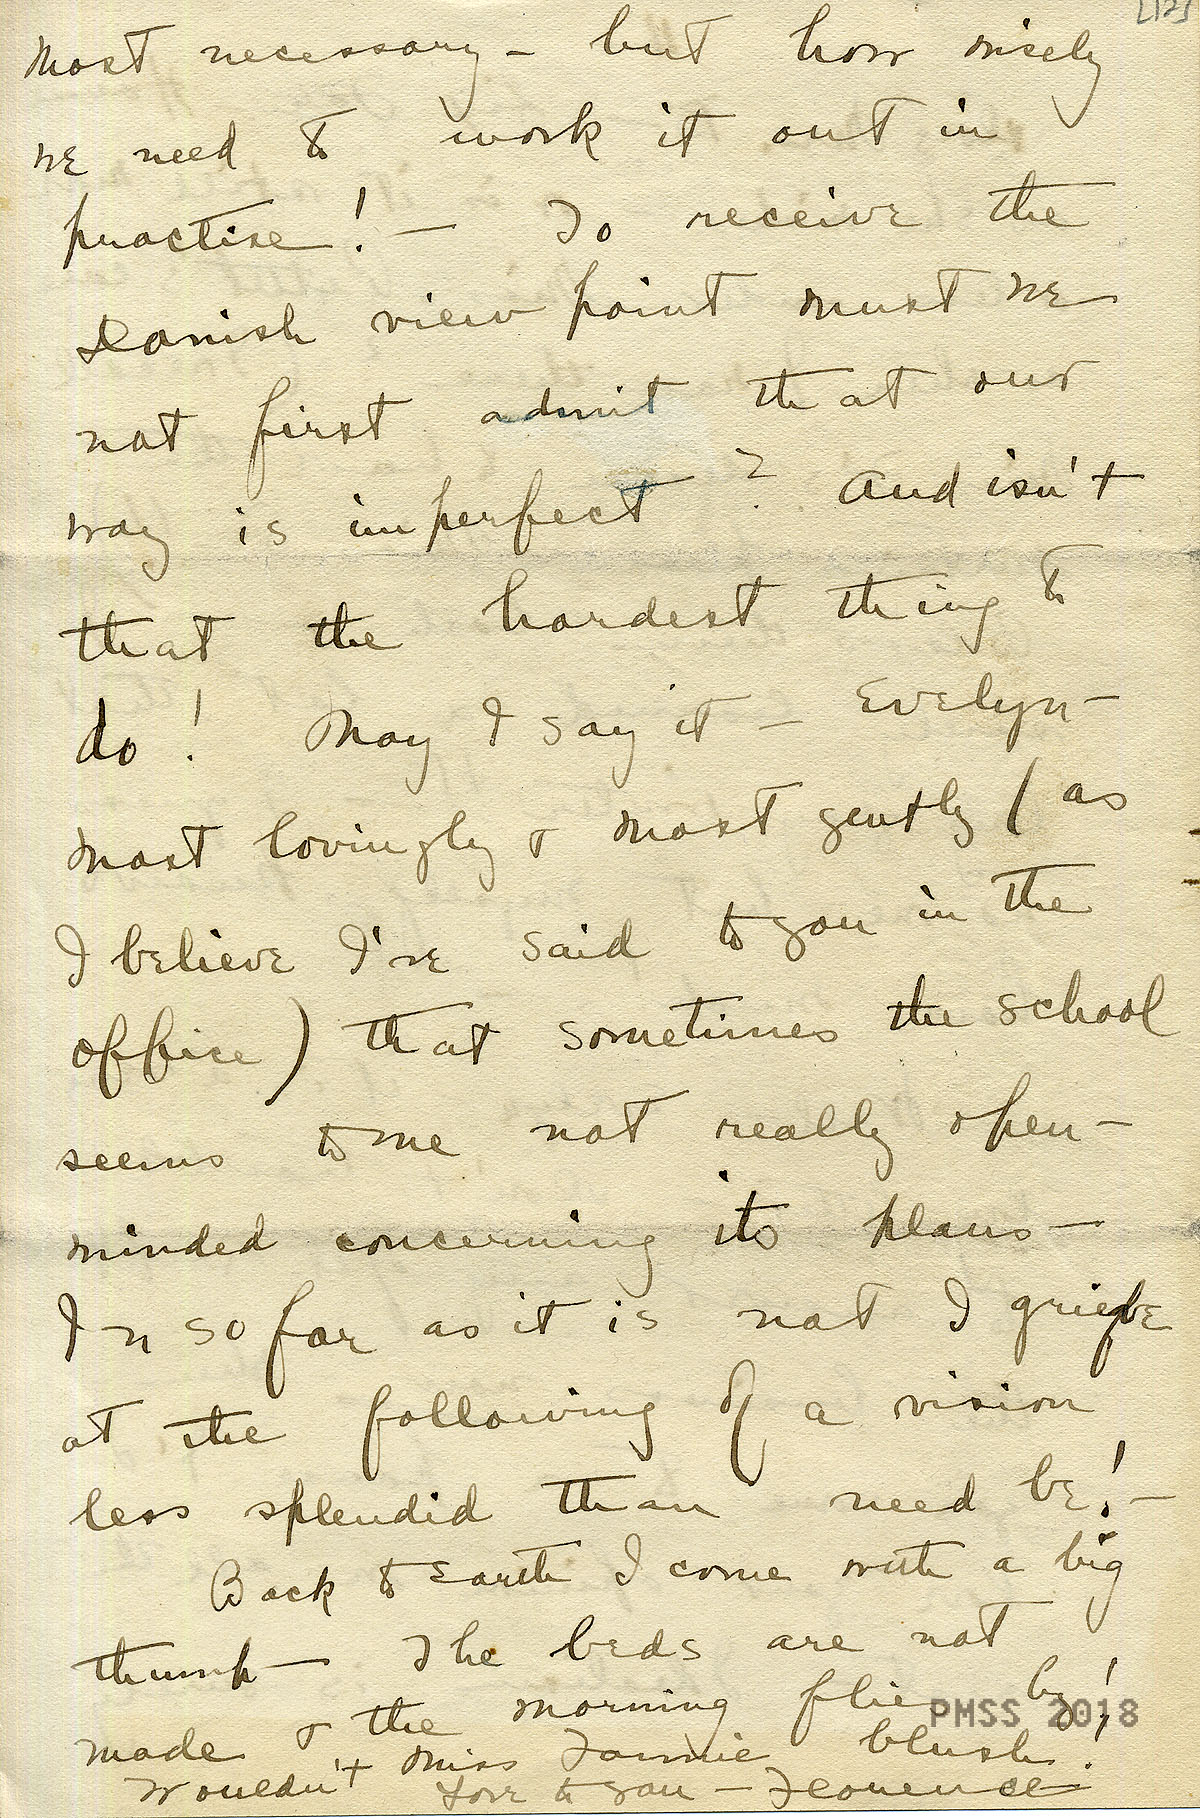 [12]
most necessary – but how wisely
we need to work it out in
practise! – To receive the
Danish view point must we
not first admit that our
way is imperfect? And isn't
that the hardest thing to
do! May I say it – Evelyn –
most lovingly & most gently (as
I believe I've said to you in the
office) that sometimes the school
seems to me not really open-
minded concerning its plans –
In so far as it is not I grieve
at the following of a vision
less splendid than need be! –
Back to Earth I come with a big
thump – The beds are not
made & the morning flies by!
Wouldn't Miss Fannie blush!
Love to you – Florence
PMSS 2018